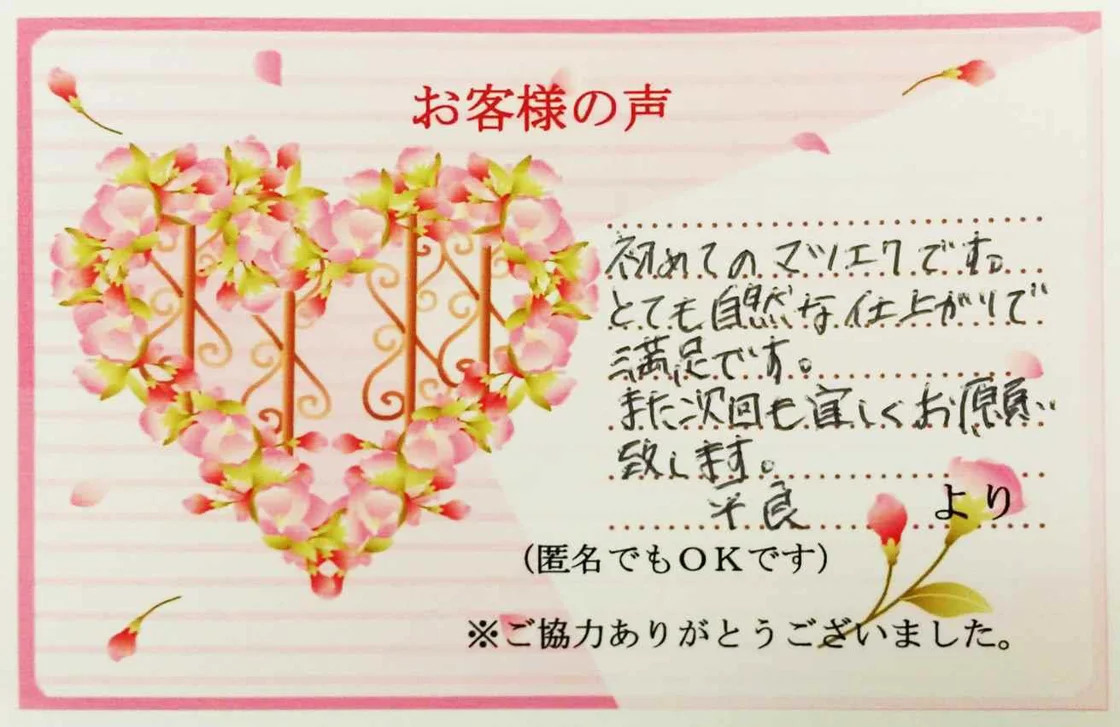 お客様の声
初めてのマツエクです。
とても自然な仕上がりで
満足です。
また次回も宜しくお願い
致します。
平良 より
(匿名でもOKです)
※ご協力ありがとうございました。